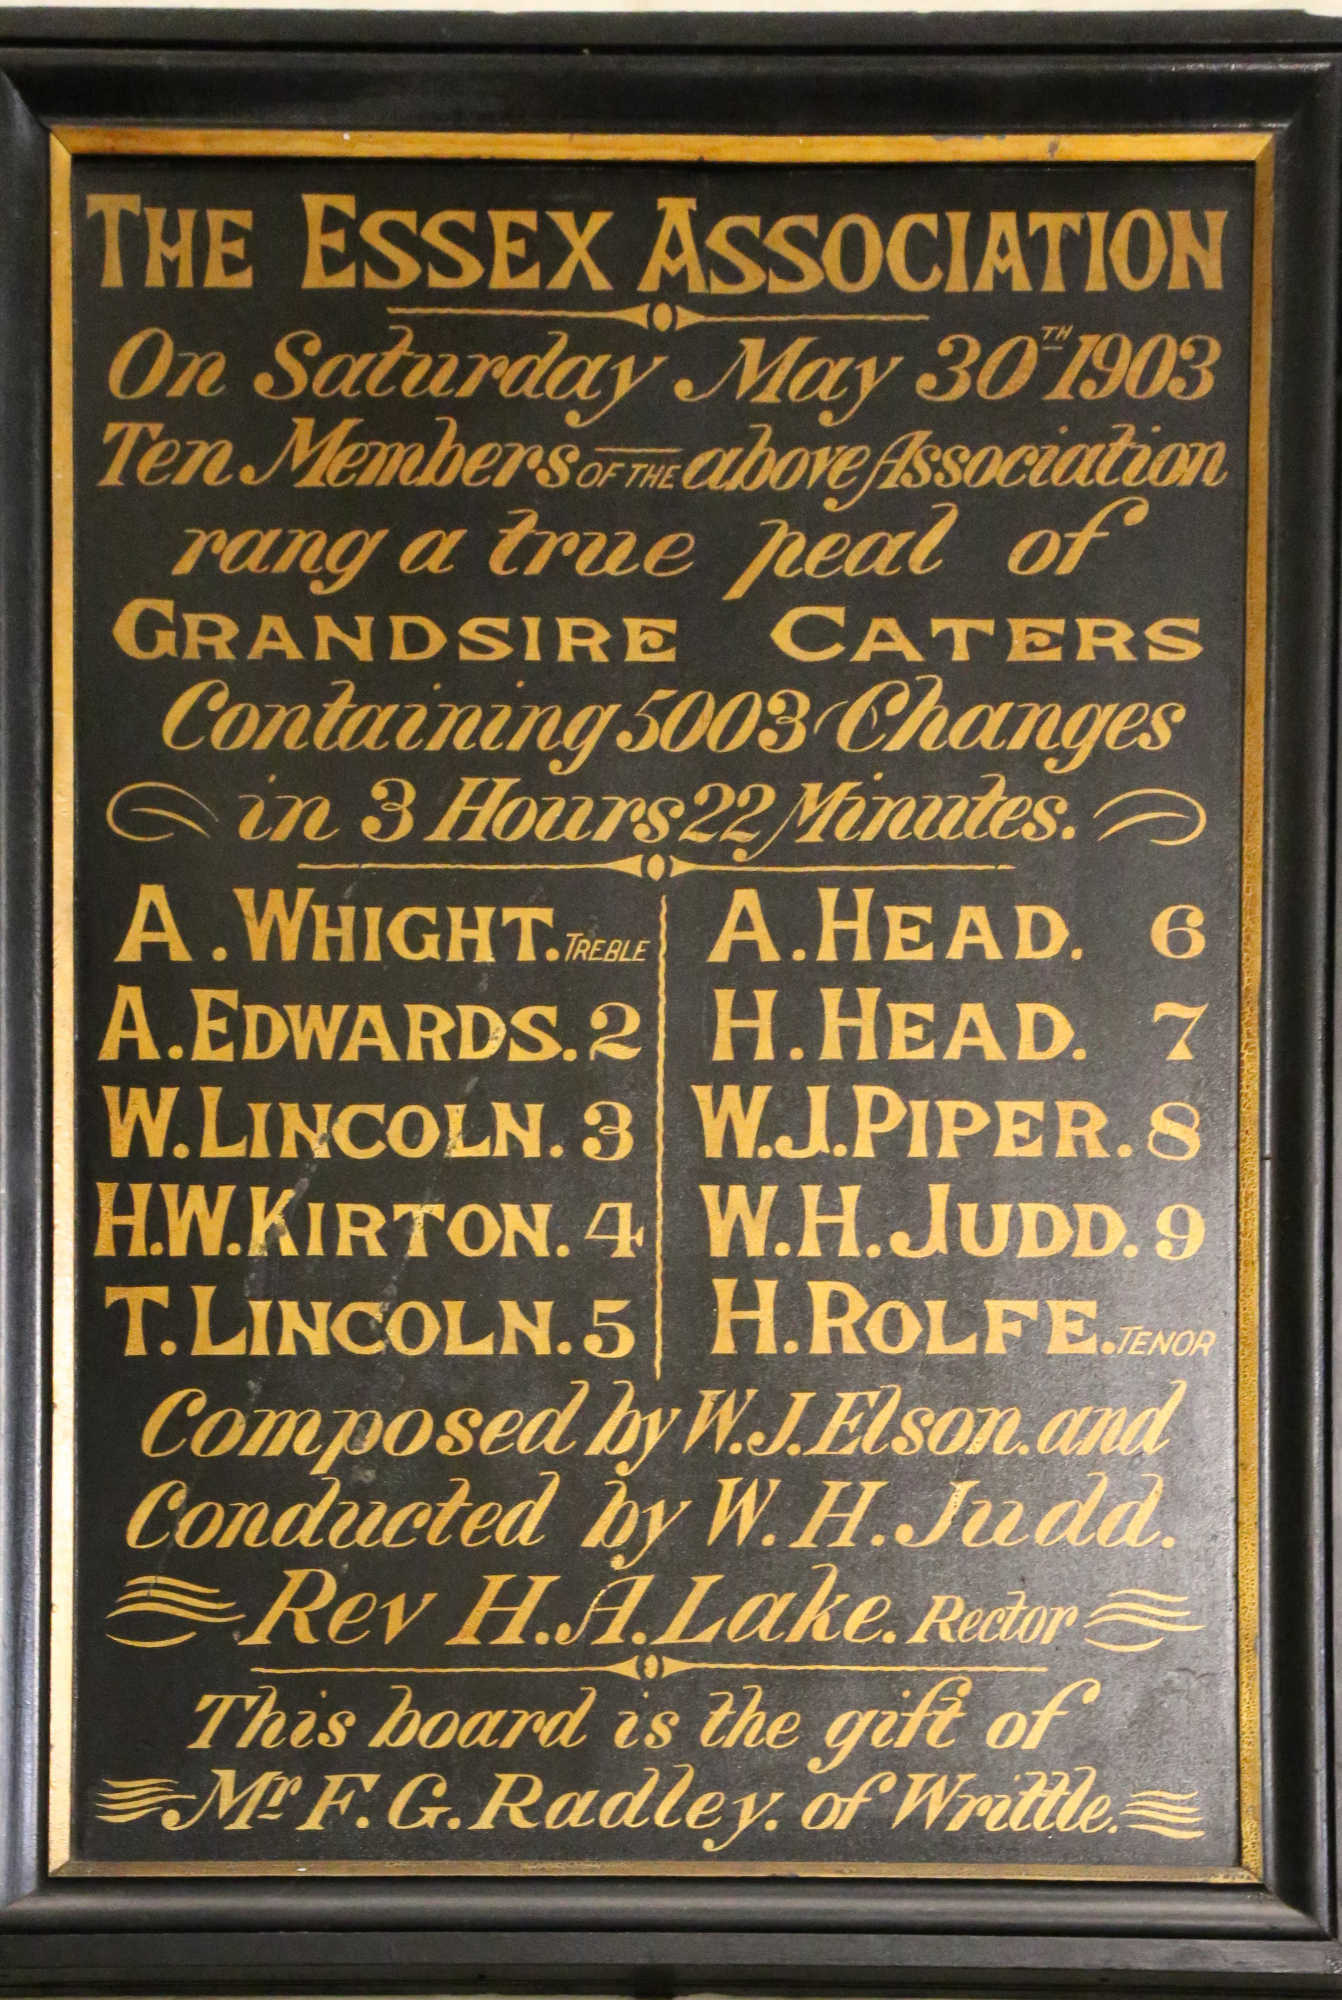 THE ESSEX ASSOCIATION
On Saturday May 30TH 1903
Ten Members OF THE above Association
rang a true peal of
GRANDSIRE CATERS
Containing 5003 Changes
in 3 Hours 22 Minutes.
A. WHIGHT. TREBLE
A. EDWARDS. 2
W. LINCOLN. 3
H.W. KIRTON. 4
T. LINCOLN. 5
A. HEAD. 6
H. HEAD. 7
W.J. PIPER. 8
W.H. JUDD. 9
H. ROLFE. TENOR
Composed by W.J. Elson. and
Conducted by W. H. Judd.
Rev H.A. Lake. Rector
This board is the gift of
Mr F. G. Radley. of Writtle.